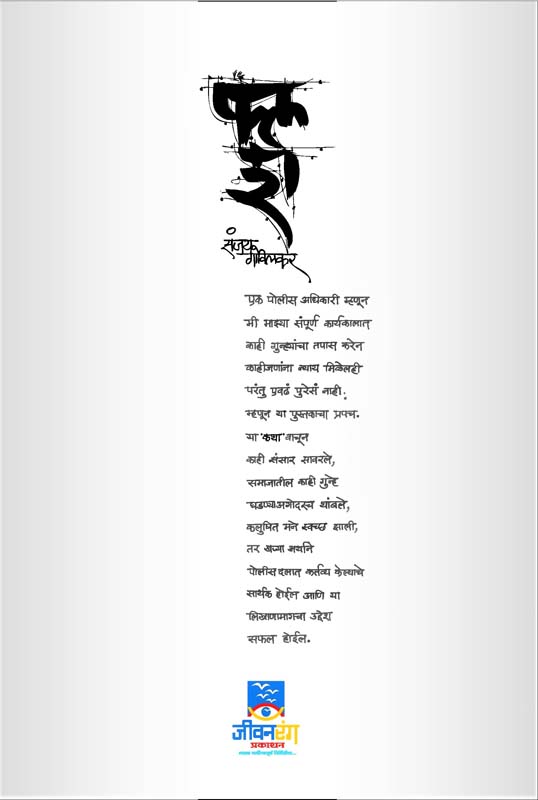 संजय
गोविलकर
एक पोलीस अधिकारी म्हणून
मी माझ्या संपूर्ण कार्यकालात
काही गुन्ह्यांचा तपास करेन
काहीजणांना न्याय मिळेलही
परंतु एवढं पुरेसं नाही.
म्हणून या पुस्तकाचा प्रपंच.
या "कथा" वाचून
काही संसार सावरले,
समाजातील काही गुन्हे
घडण्याअगोदरच थांबले,
कलुषित मने स्वच्छ झाली,
तर खऱ्या अर्थाने
पोलीस दलात कर्तव्य केल्याचे
सार्थक होईल आणि या
लिखाणामागचा उद्देश
सफल होईल.
जीवनरंग
प्रकाशन